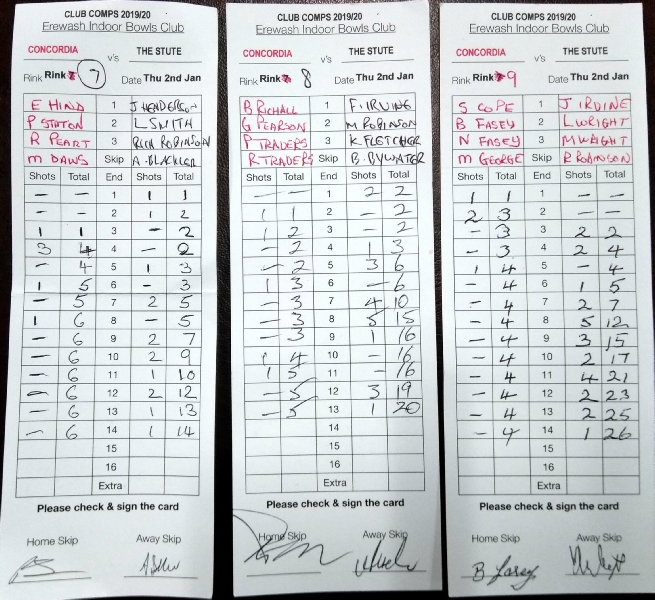 CLUB COMPS 2019/20
Erewash Indoor Bowls Club
CONCORDIA v's THE STUTE
Rink Rink 7 Date Thu 2nd Jan
E HIND 1 J HENDERSON
P STATON 2 L SMITH
R PEART 3 RICH ROBINSON
M DAWS Skip A. BLACKLER
Shots Total End Shots Total
- - 1 1 1
- - 2 1 2
1 1 3 - 2
3 4 4 - 2
- 4 5 1 3
1 5 6 - 3
- 5 7 2 5
1 6 8 - 5
- 6 9 2 7
- 6 10 2 9
- 6 11 1 10
- 6 12 2 12
- 6 13 1 13
- 6 14 1 14
15
16
Extra
Please check & sign the card
Home Skip Away Skip
CLUB COMPS 2019/20
Erewash Indoor Bowls Club
CONCORDIA v's THE STUTE
Rink Rink 8 Date Thu 2nd Jan
B RICHALL 1 F. IRVING
G PEARSON 2 M ROBINSON
P TRADERS 3 K FLETCHER
R TRADERS Skip B. BYWATER
Shots Total End Shots Total
- - 1 2 2
1 1 2 - 2
1 2 3 - 2
- 2 4 1 3
- 2 5 3 6
1 3 6 - 6
- 3 7 4 10
- 3 8 5 15
- 3 9 1 16
1 4 10 - 16
1 5 11 - 16
- 5 12 3 19
- 5 13 1 20
14
15
16
Extra
Please check & sign the card
Home Skip Away Skip
CLUB COMPS 2019/20
Erewash Indoor Bowls Club
CONCORDIA v's THE STUTE
Rink Rink 9 Date Thu 2nd Jan
S COPE 1 J IRDINE
B FASEY 2 L WRIGHT
N FASEY 3 M WRIGHT
M GEORGE Skip R ROBINSON
Shots Total End Shots Total
1 1 1 - -
2 3 2 - -
- 3 3 2 2
- 3 4 2 4
1 4 5 - 4
- 4 6 1 5
- 4 7 2 7
- 4 8 5 12
- 4 9 3 15
- 4 10 2 17
- 4 11 4 21
- 4 12 2 23
- 4 13 2 25
- 4 14 1 26
15
16
Extra
Please check & sign the card
Home Skip Away Skip
B Fasey